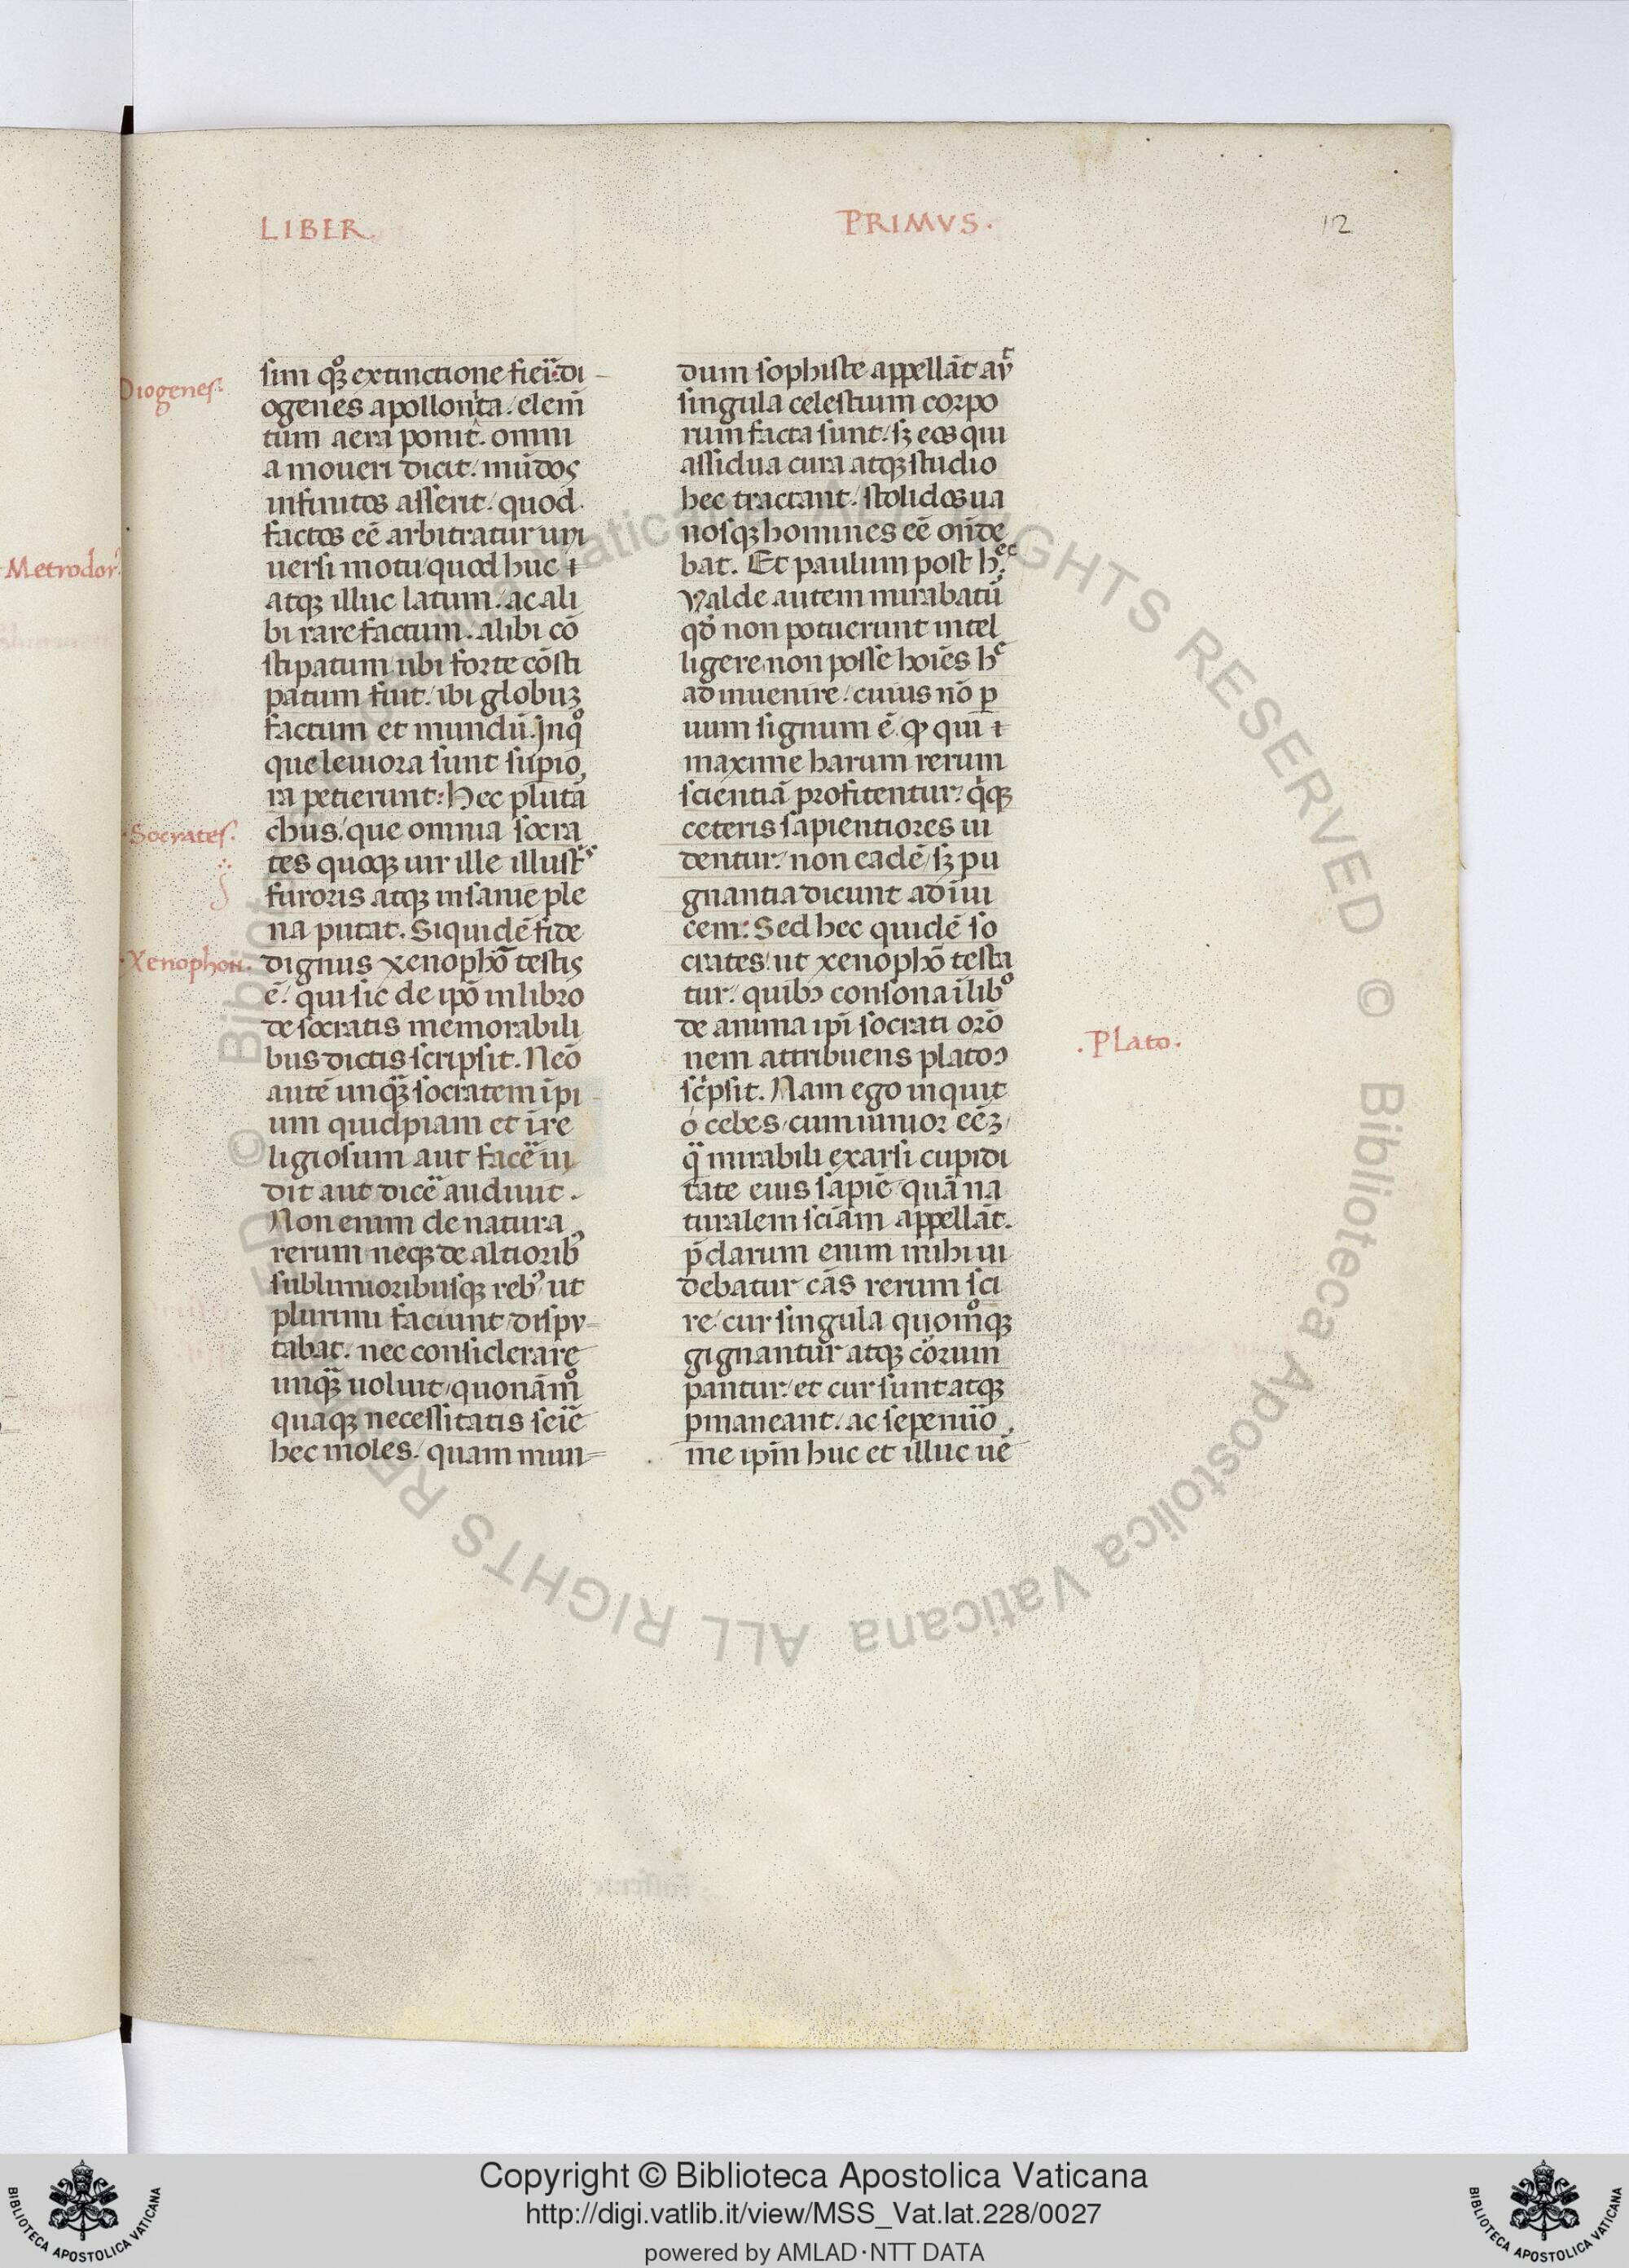 LIBER
PRIMVS.
12
Diogenes.
Metrodorꝰ
Socrates.
Xenophon.
sim qꝫ̊ extinctione fieri: di
ogenes apollonita. elem̄
tum aera ponit. omni
a moueri dicit. mūdos
infinitos asserit. quod
factos eē arbitratur uni
uersi motu quod huc ⁊
atqꝫ illuc latum. ac ali
bi rarefactum. alibi cō
stipatum ubi forte cōsti
patum fuit. ibi globuꝫ
factum et mundū. Inqͦ
que leuiora sunt supio
ra petierunt: Hec plutā
chus. que omnia socra
tes quoqꝫ uir ille illust͛s
furoris atqꝫ insanie ple
na putat. Siquidē fide
dignus xenophō testis
ē. qui sic de ipō in libro
de socratis memorabili
bus dictis scripsit. Neō
autē unqꝫ̄ socratem īpi
um quidpiam et ire
ligiosum aut facē ui
dit aut dicē audiuit.
Non enim de natura
rerum neqꝫ de altioribꝰ
sublimioribusqꝫ rebꝰ ut
plurimi faciunt dispu-
tabat. nec considerare
unqꝫ̄ uoluit quonām̊
quaqꝫ necessitatis scīe
hec moles. quam mun=
dum sophiste appellāt aᷓ
singula celestium corpo
rum facta sunt. sꝫ eos qui
assidua cura atqꝫ studio
hec tractant. stolidos ua
nosqꝫ homines eē onde
bat. Et paulum post h̄ec
Valde autem mirabatū
qđ non potuerunt intel
ligere non posse hoiēs hͨ
adinuenire. cuius nō p
uum signum ē. ꝙ qui ⁊
maxime harum rerum
scientiā profitentur. qͥqꝫ
ceteris sapientiores ui
dentur. non eadē sꝫ pu
gnantia dicunt adiui
cem: Sed hec quidē so
crates. ut xenophō testa
tur. quibꝰ consona ī libͦ
de anima ipī socrati orō
nem attribuens platoↄ
scͥpsit. Nam ego inquit
o cebes. cum iunior eēꝫ
qͣ̄ mirabili exarsi cupidi
tate eius sapiē quā na
turalem sciām appellāt.
p̄clarum enim mihi ui
debatur cās rerum sci
re. cur singula quom̊qꝫ
gignantur atqꝫ corrum
pantur. et cur sunt atqꝫ
pmaneant. ac sepenūo
me ipm̄ huc et illuc uē
.Plato.
© Biblioteca Apostolica Vaticana ALL RIGHTS RESERVED © Biblioteca Apostolica Vaticana ALL RIGHTS RESERVED
BIBLIOTECA APOSTOLICA VATICANA
Copyright © Biblioteca Apostolica Vaticana
http://digi.vatlib.it/view/MSS_Vat.lat.228/0027
powered by AMLAD·NTT DATA
BIBLIOTECA APOSTOLICA VATICANA